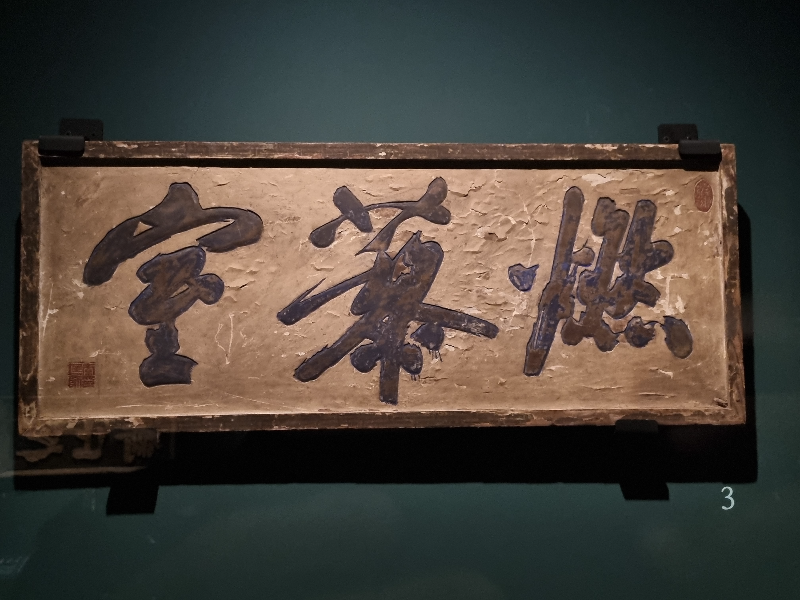 燃藜室
3